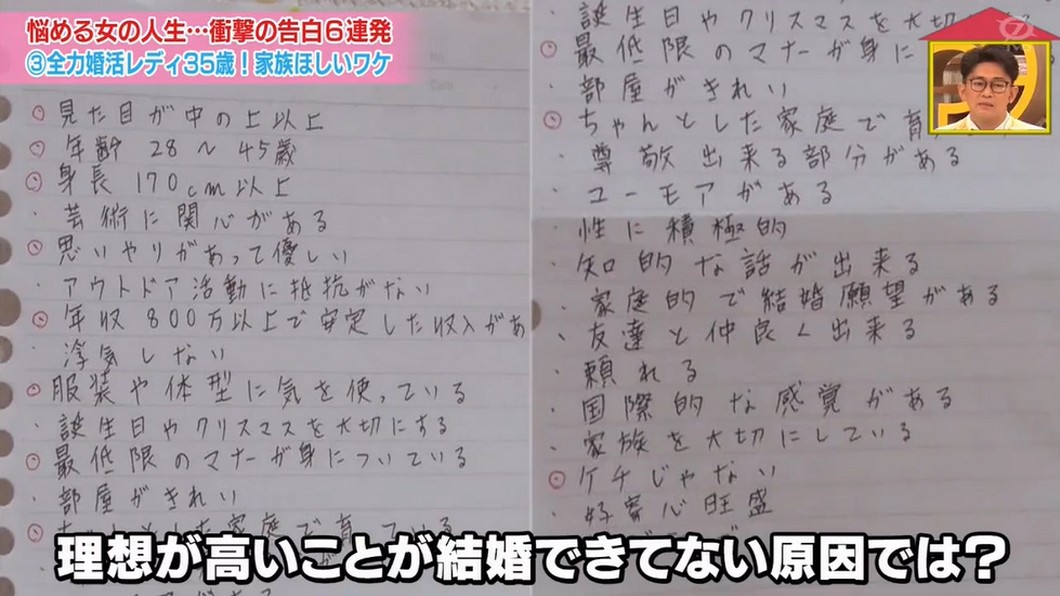 悩める女の人生…衝撃の告白6連発
③全力婚活レディ35歳!家族ほしいワケ
見た目が中の上以上
年齢 28〜45歳
身長 170cm以上
・芸術に関心がある
思いやりがあって優しい
・アウトドア活動に抵抗がない
年収 800万以上で安定した収入があ
・浮気しない
服装や体型に気を使っている
・誕生日やクリスマスを大切にする
最低限のマナーが身についている
・部屋がきれい
ちゃんとした家庭で育っている
・誕生日やクリスマスを大切
最低限のマナーが身に
・部屋がきれい
ちゃんとした家庭で育
・尊敬出来る部分がある
・ユーモアがある
・性に積極的
・知的な話が出来る
・家庭的で結婚願望がある
・友達と仲良く出来る
・頼れる
・国際的な感覚がある
・家族を大切にしている
ケチじゃない
・好奇心旺盛
理想が高いことが結婚できてない原因では?